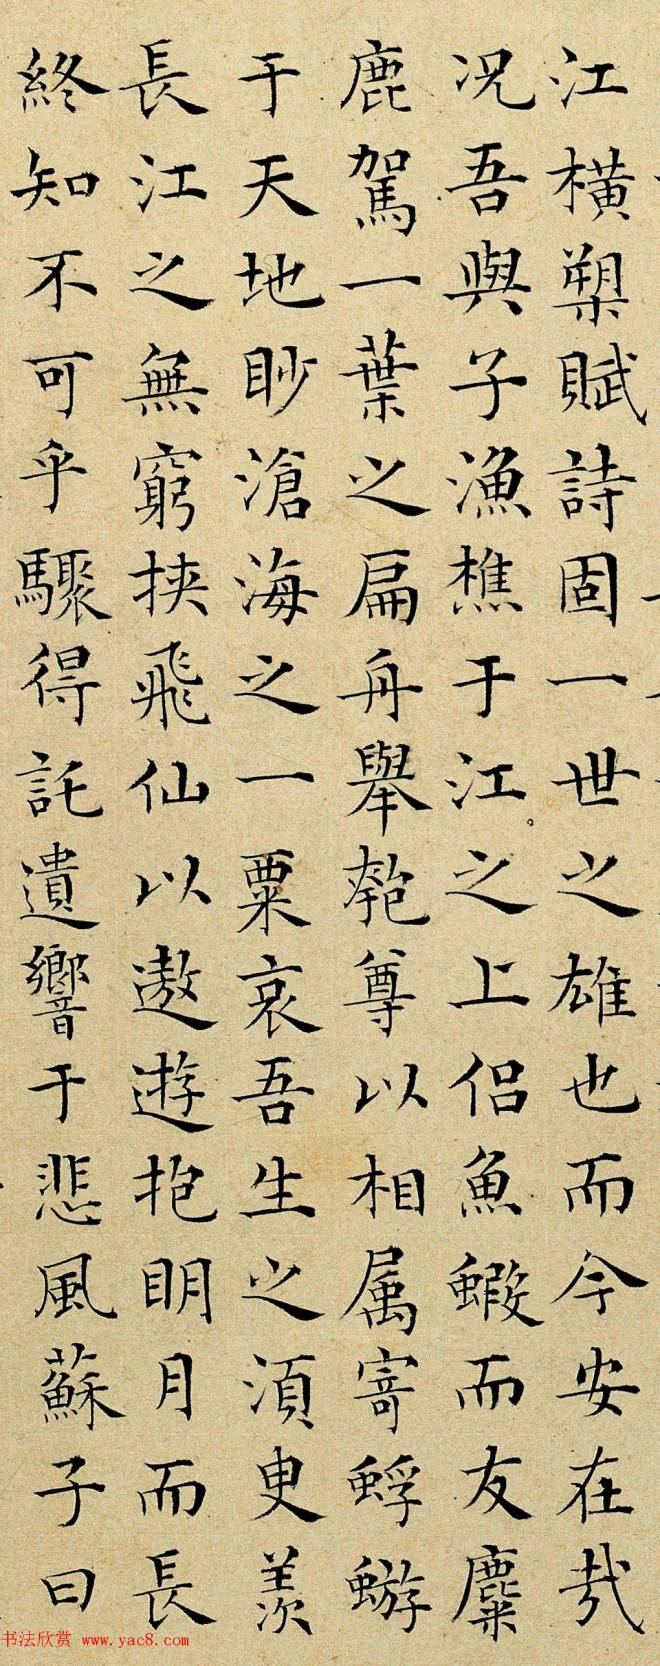 江橫槊賦詩固一世之雄也而今安在哉
况吾與子漁樵于江之上侶魚蝦而友麋
鹿駕一葉之扁舟舉匏尊以相属寄蜉蝣
于天地眇滄海之一粟哀吾生之須臾羨
長江之無窮挾飛仙以遨遊抱眀月而長
終知不可乎驟得託遺響于悲風蘇子曰
书法欣赏 www.yac8.com